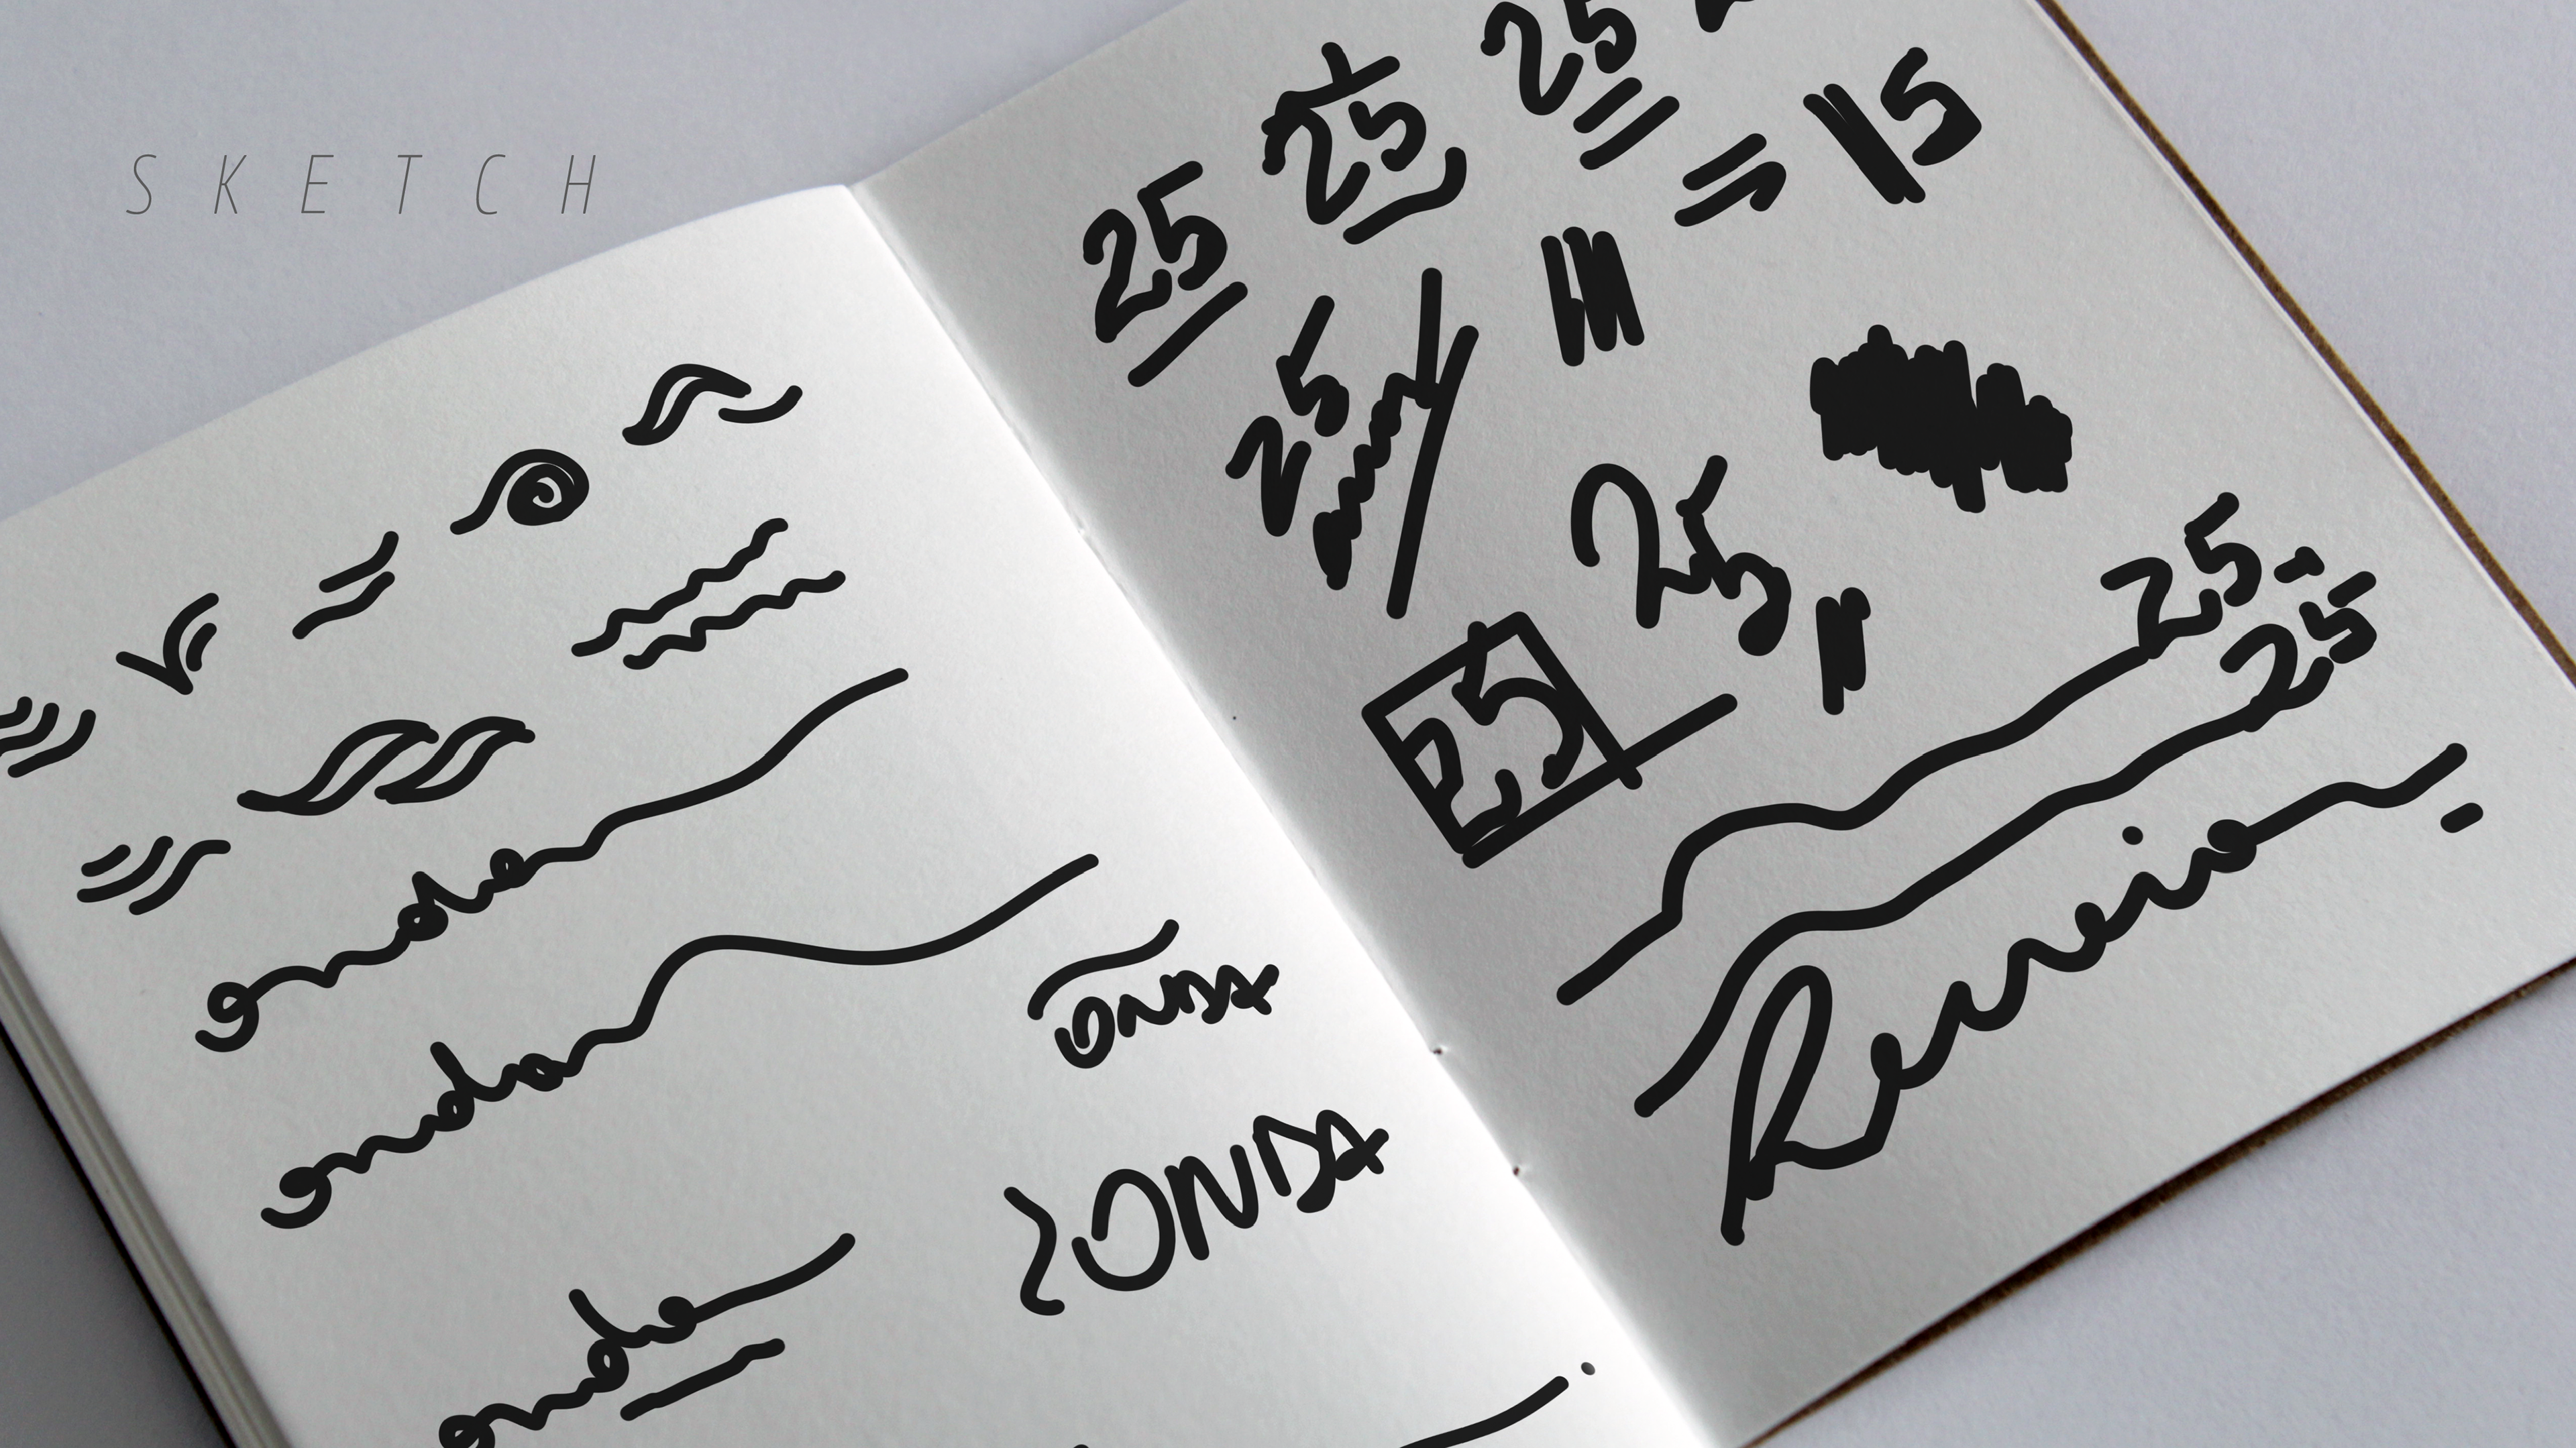 SKETCH
onda
onda
ONDA
ONDA
onda
25
25
25
15
25
25
25
25
25